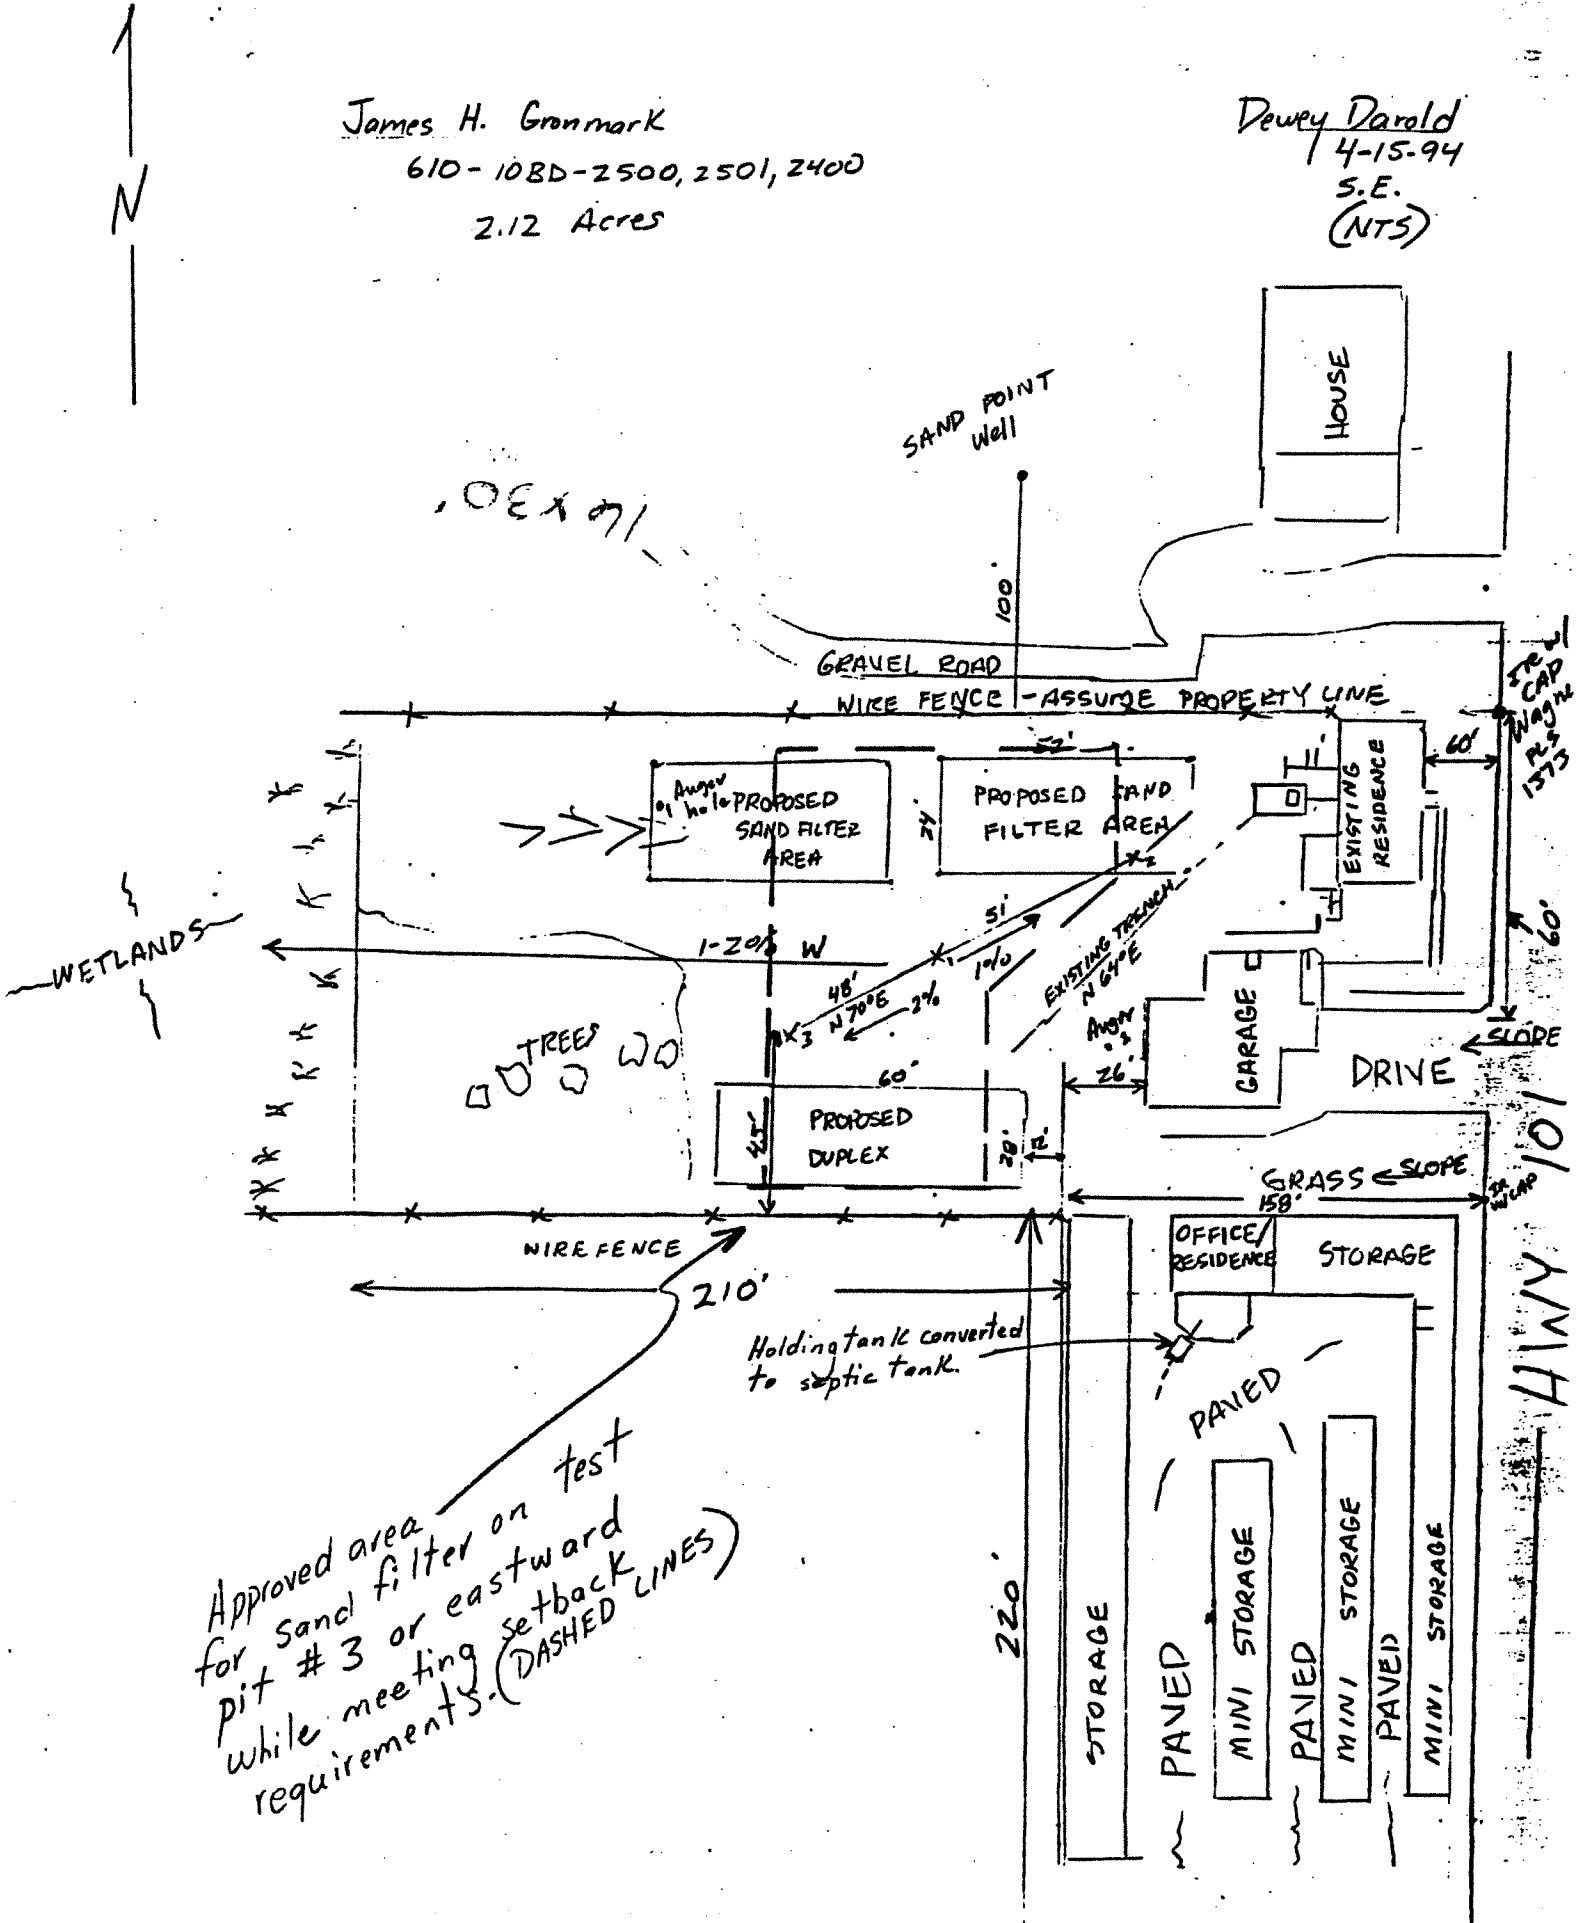 N
James H. Gronmark
610-10BD-2500, 2501, 2400
2.12 Acres
Dewey Darold
4-15-94
S.E.
(NTS)
HOUSE
SAND POINT
Well
100'
GRAVEL ROAD
WIRE FENCE - ASSUME PROPERTY LINE
CAP
Wagner
PLS
1373
52'
60'
11'
Auger
hole
PROPOSED
SAND FILTER
AREA
24'
PROPOSED SAND
FILTER AREA
EXISTING
RESIDENCE
2
51'
1
1%
EXISTING TRENCH
N 64°E
WETLANDS
1-2% W
48'
N 70°E
2%
3
60'
TREES
Auger
26'
GARAGE
SLOPE
DRIVE
60'
PROPOSED
DUPLEX
45'
28'
12'
GRASS
SLOPE
158'
IR
W/CAP
HWY 101
WIRE FENCE
210'
OFFICE/
RESIDENCE
STORAGE
Holding tank converted
to septic tank.
PAVED
Approved area
for sand filter on test
pit # 3 or eastward
while meeting setback
requirements. (DASHED LINES)
220'
STORAGE
PAVED
MINI STORAGE
PAVED
MINI STORAGE
PAVED
MINI STORAGE